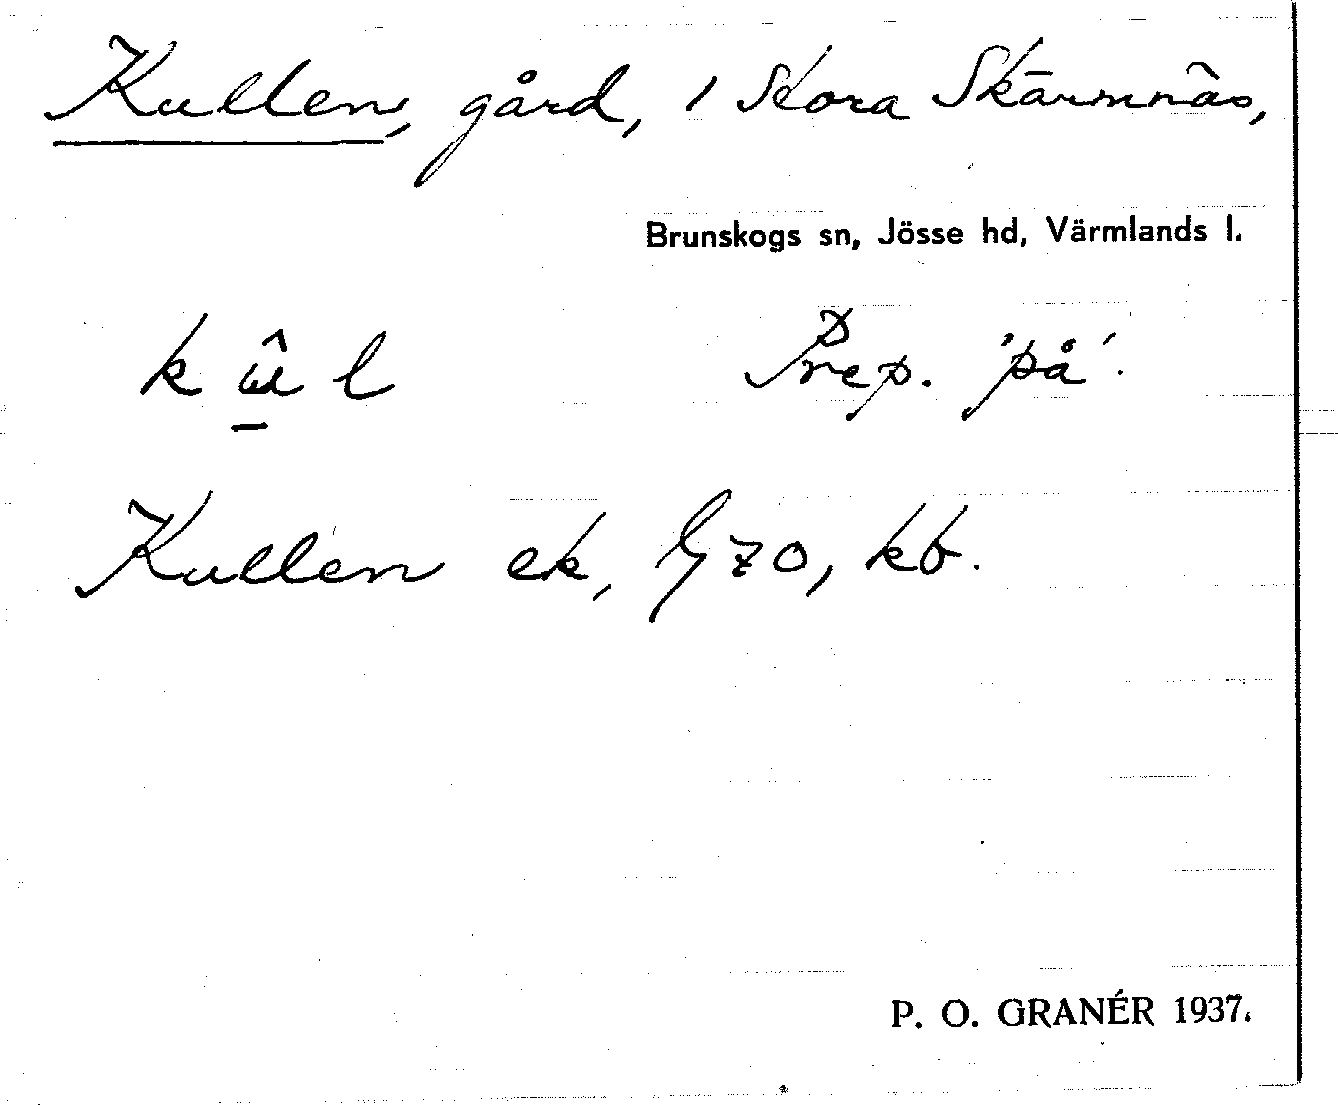 Kullen, gård, i Stora Skärmnäs,
Brunskogs sn, Jösse hd, Värmlands l.
k l Prep. 'på'.
Kullen ek, 70, kb.
P. O. GRANÉR 1937.